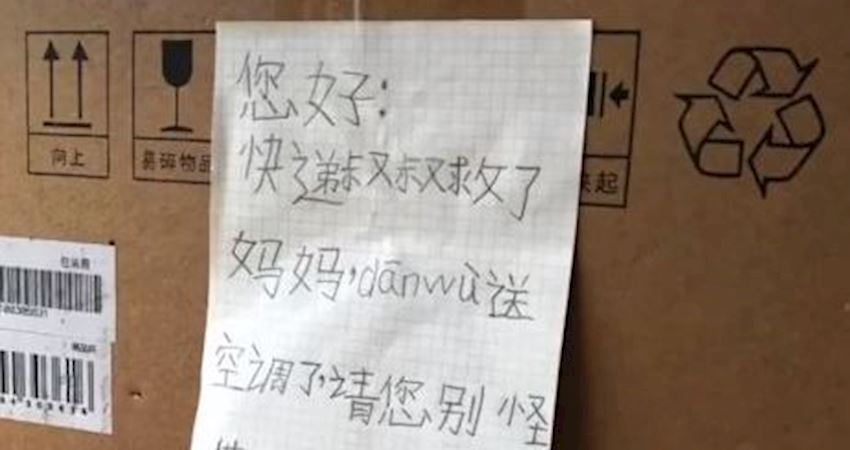 您好:
快递叔叔救了
妈妈,dānwù送
空调了,请您别怪
向上
易碎物品